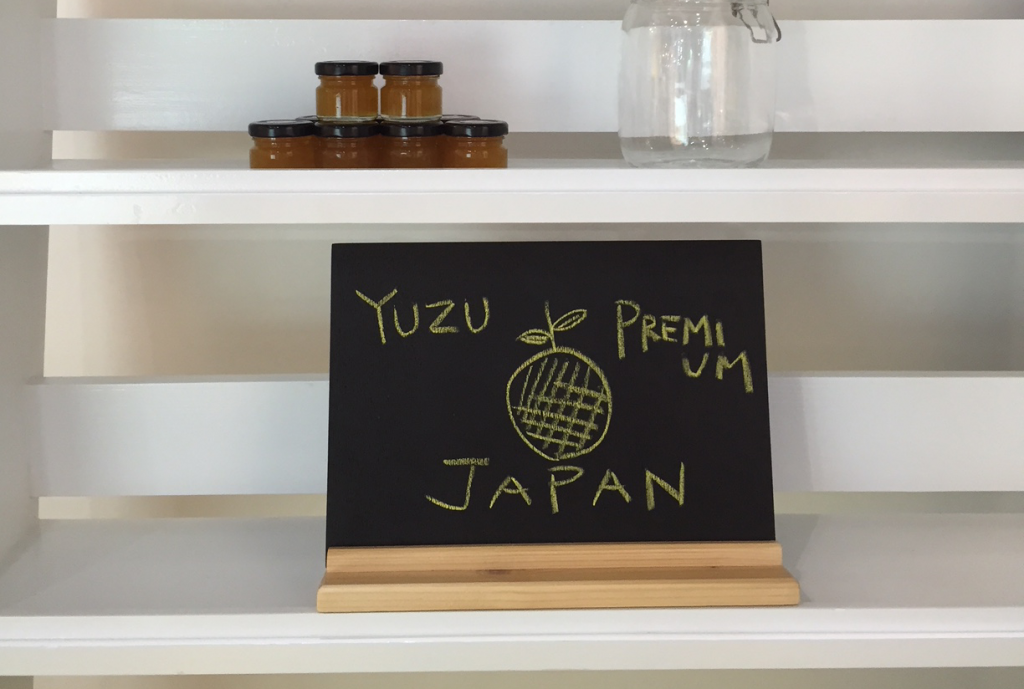 YUZU
PREMI
UM
JAPAN